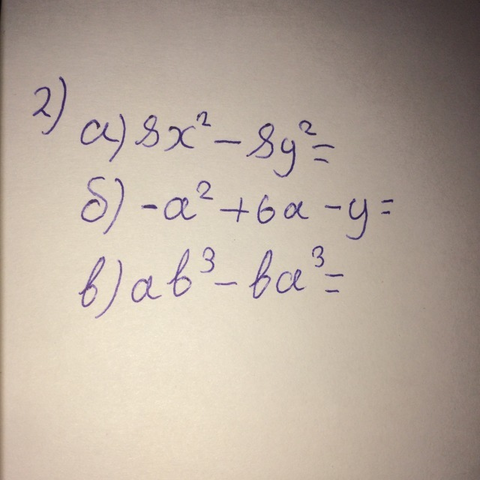 2) а) 8x² − 8y² =
б) -a² + 6a − y =
в) ab³ − ba³ =